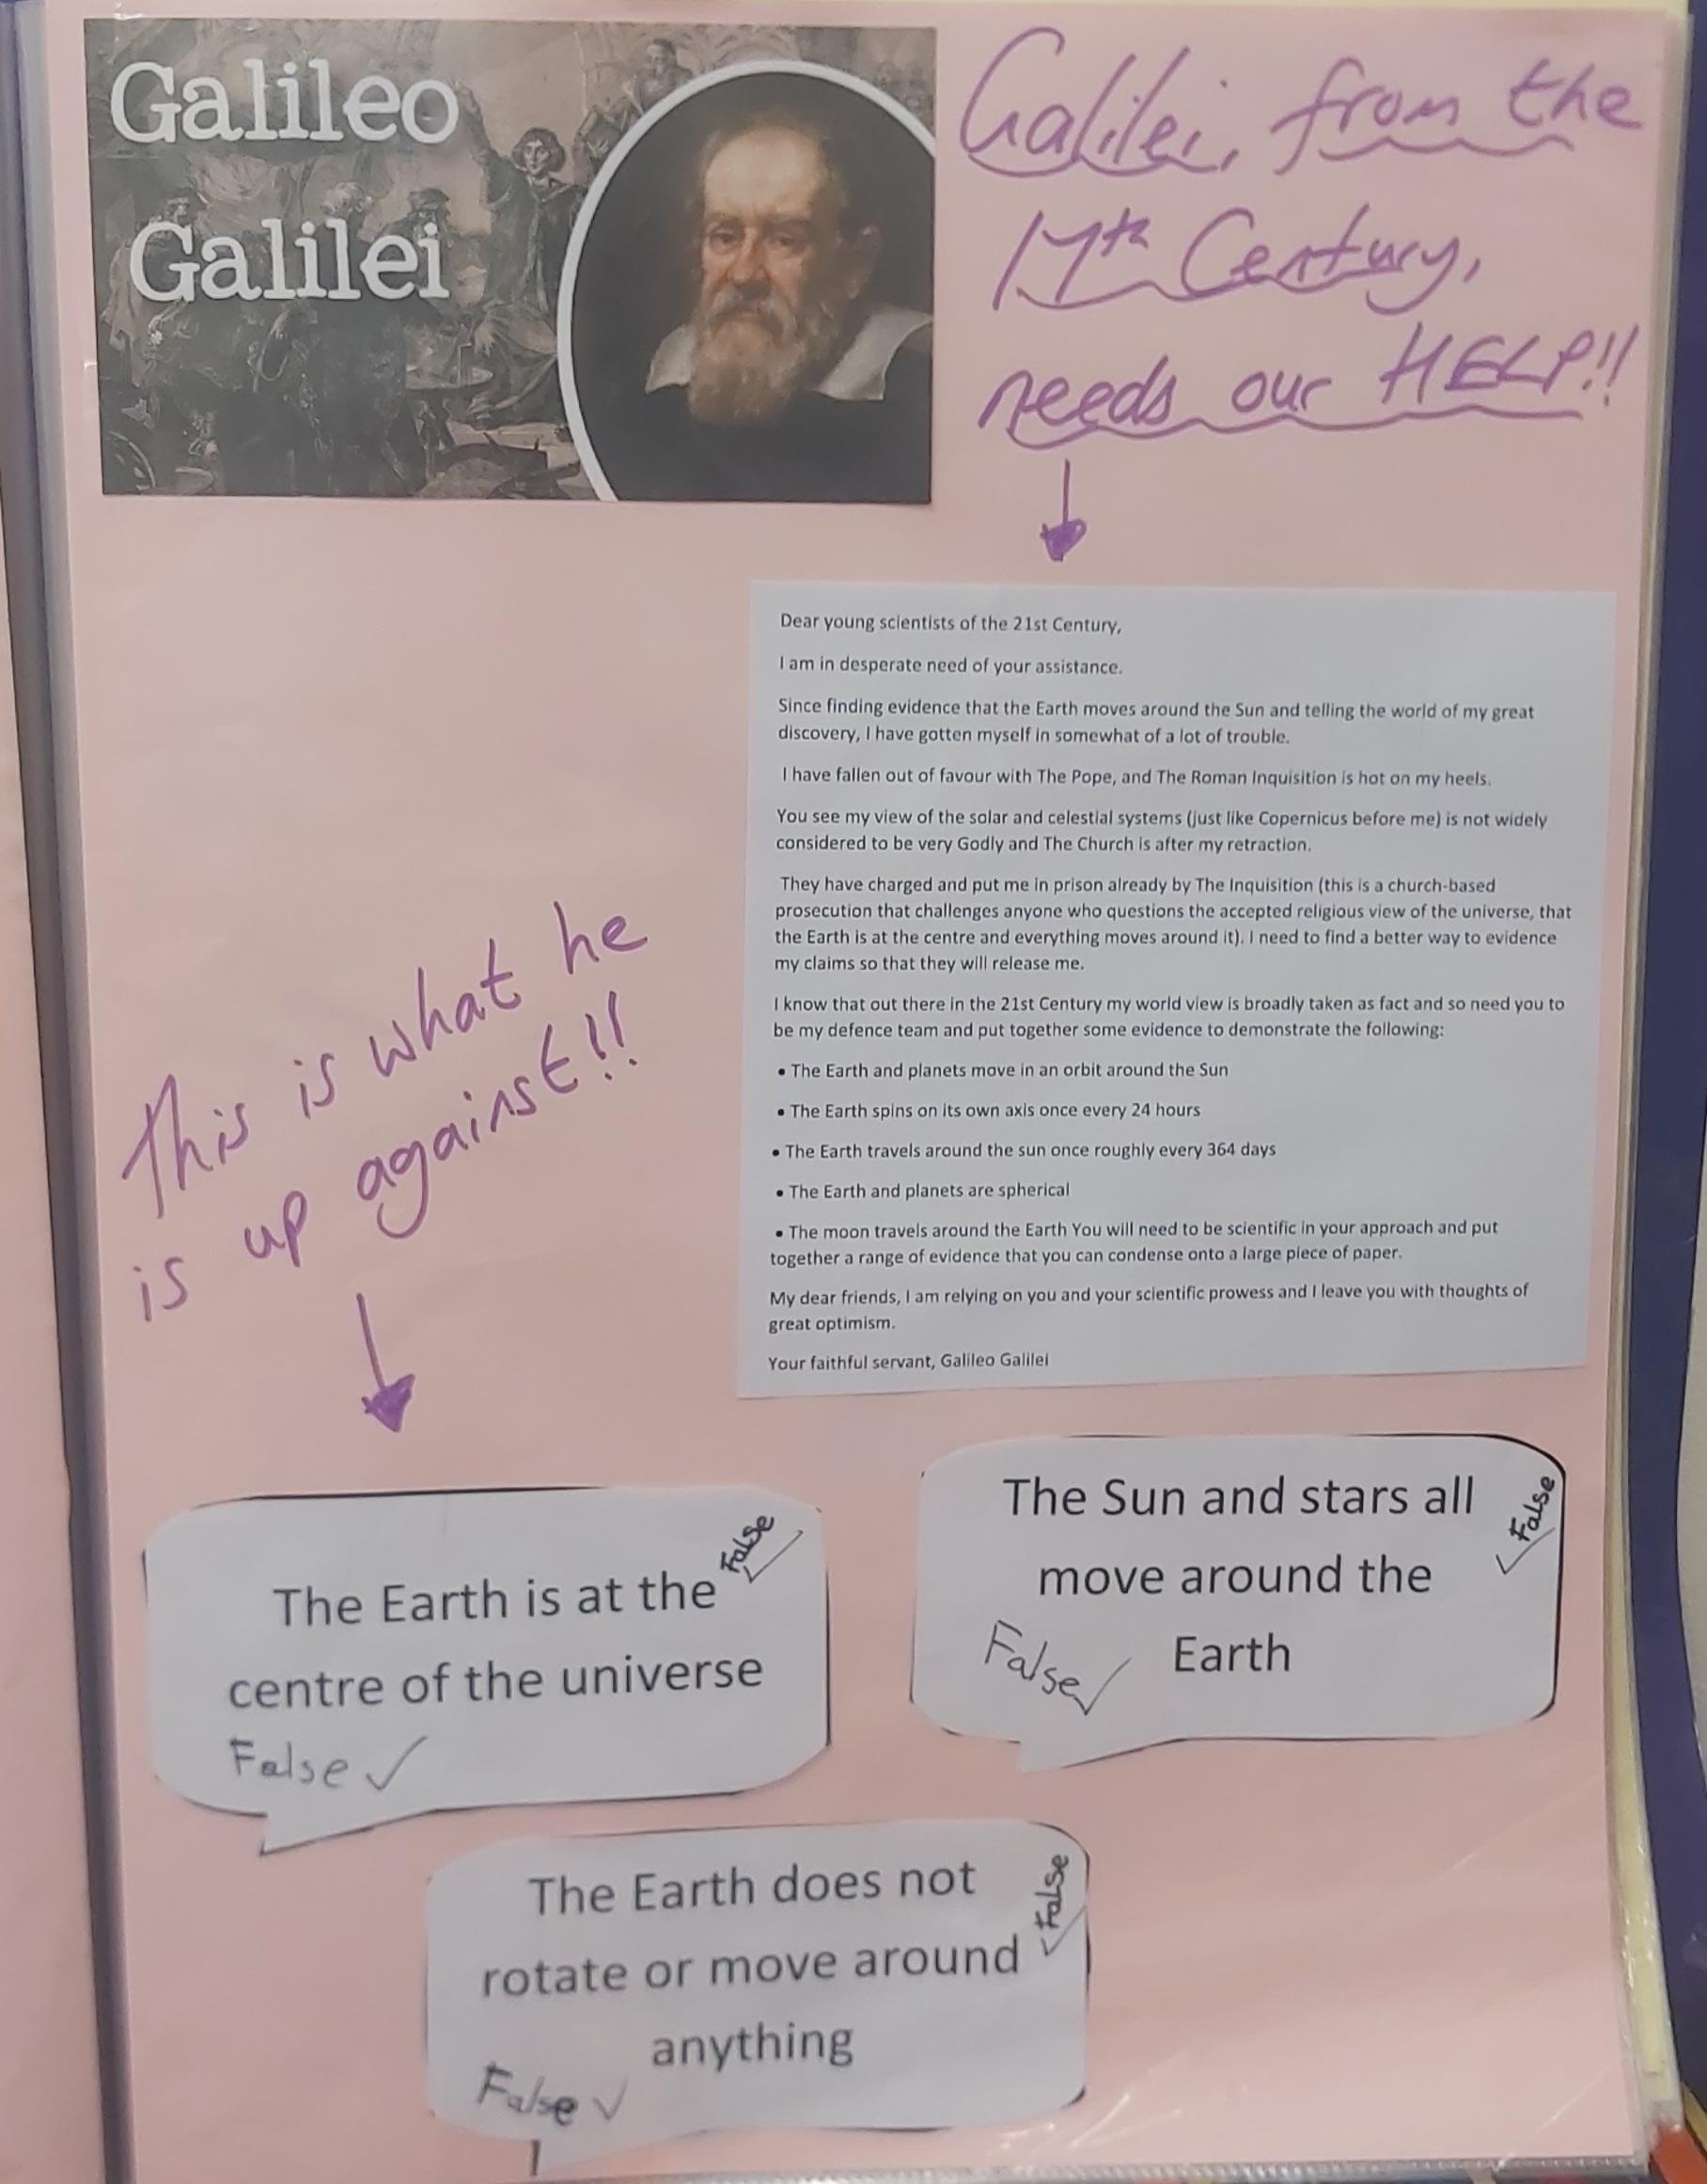 Galileo
Galilei
Galilei, from the
17th Century,
needs our HELP!!
Dear young scientists of the 21st Century,
I am in desperate need of your assistance.
Since finding evidence that the Earth moves around the Sun and telling the world of my great
discovery, I have gotten myself in somewhat of a lot of trouble.
I have fallen out of favour with The Pope, and The Roman Inquisition is hot on my heels.
You see my view of the solar and celestial systems (just like Copernicus before me) is not widely
considered to be very Godly and The Church is after my retraction.
They have charged and put me in prison already by The Inquisition (this is a church-based
prosecution that challenges anyone who questions the accepted religious view of the universe, that
the Earth is at the centre and everything moves around it). I need to find a better way to evidence
my claims so that they will release me.
I know that out there in the 21st Century my world view is broadly taken as fact and so need you to
be my defence team and put together some evidence to demonstrate the following:
• The Earth and planets move in an orbit around the Sun
• The Earth spins on its own axis once every 24 hours
• The Earth travels around the sun once roughly every 364 days
• The Earth and planets are spherical
• The moon travels around the Earth You will need to be scientific in your approach and put
together a range of evidence that you can condense onto a large piece of paper.
My dear friends, I am relying on you and your scientific prowess and I leave you with thoughts of
great optimism.
Your faithful servant, Galileo Galilei
This is what he
is up against!!
The Earth is at the
centre of the universe
False ✓
False ✓
The Sun and stars all
move around the
Earth
False ✓
False ✓
The Earth does not
rotate or move around
anything
False ✓
False ✓